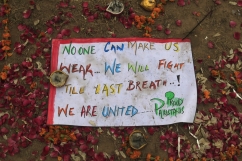 NO ONE CAN MAKE US
WEAK... WE WILL FIGHT
TILL LAST BREATH...!
WE ARE UNITED.....
PROUD
PAKISTANIS